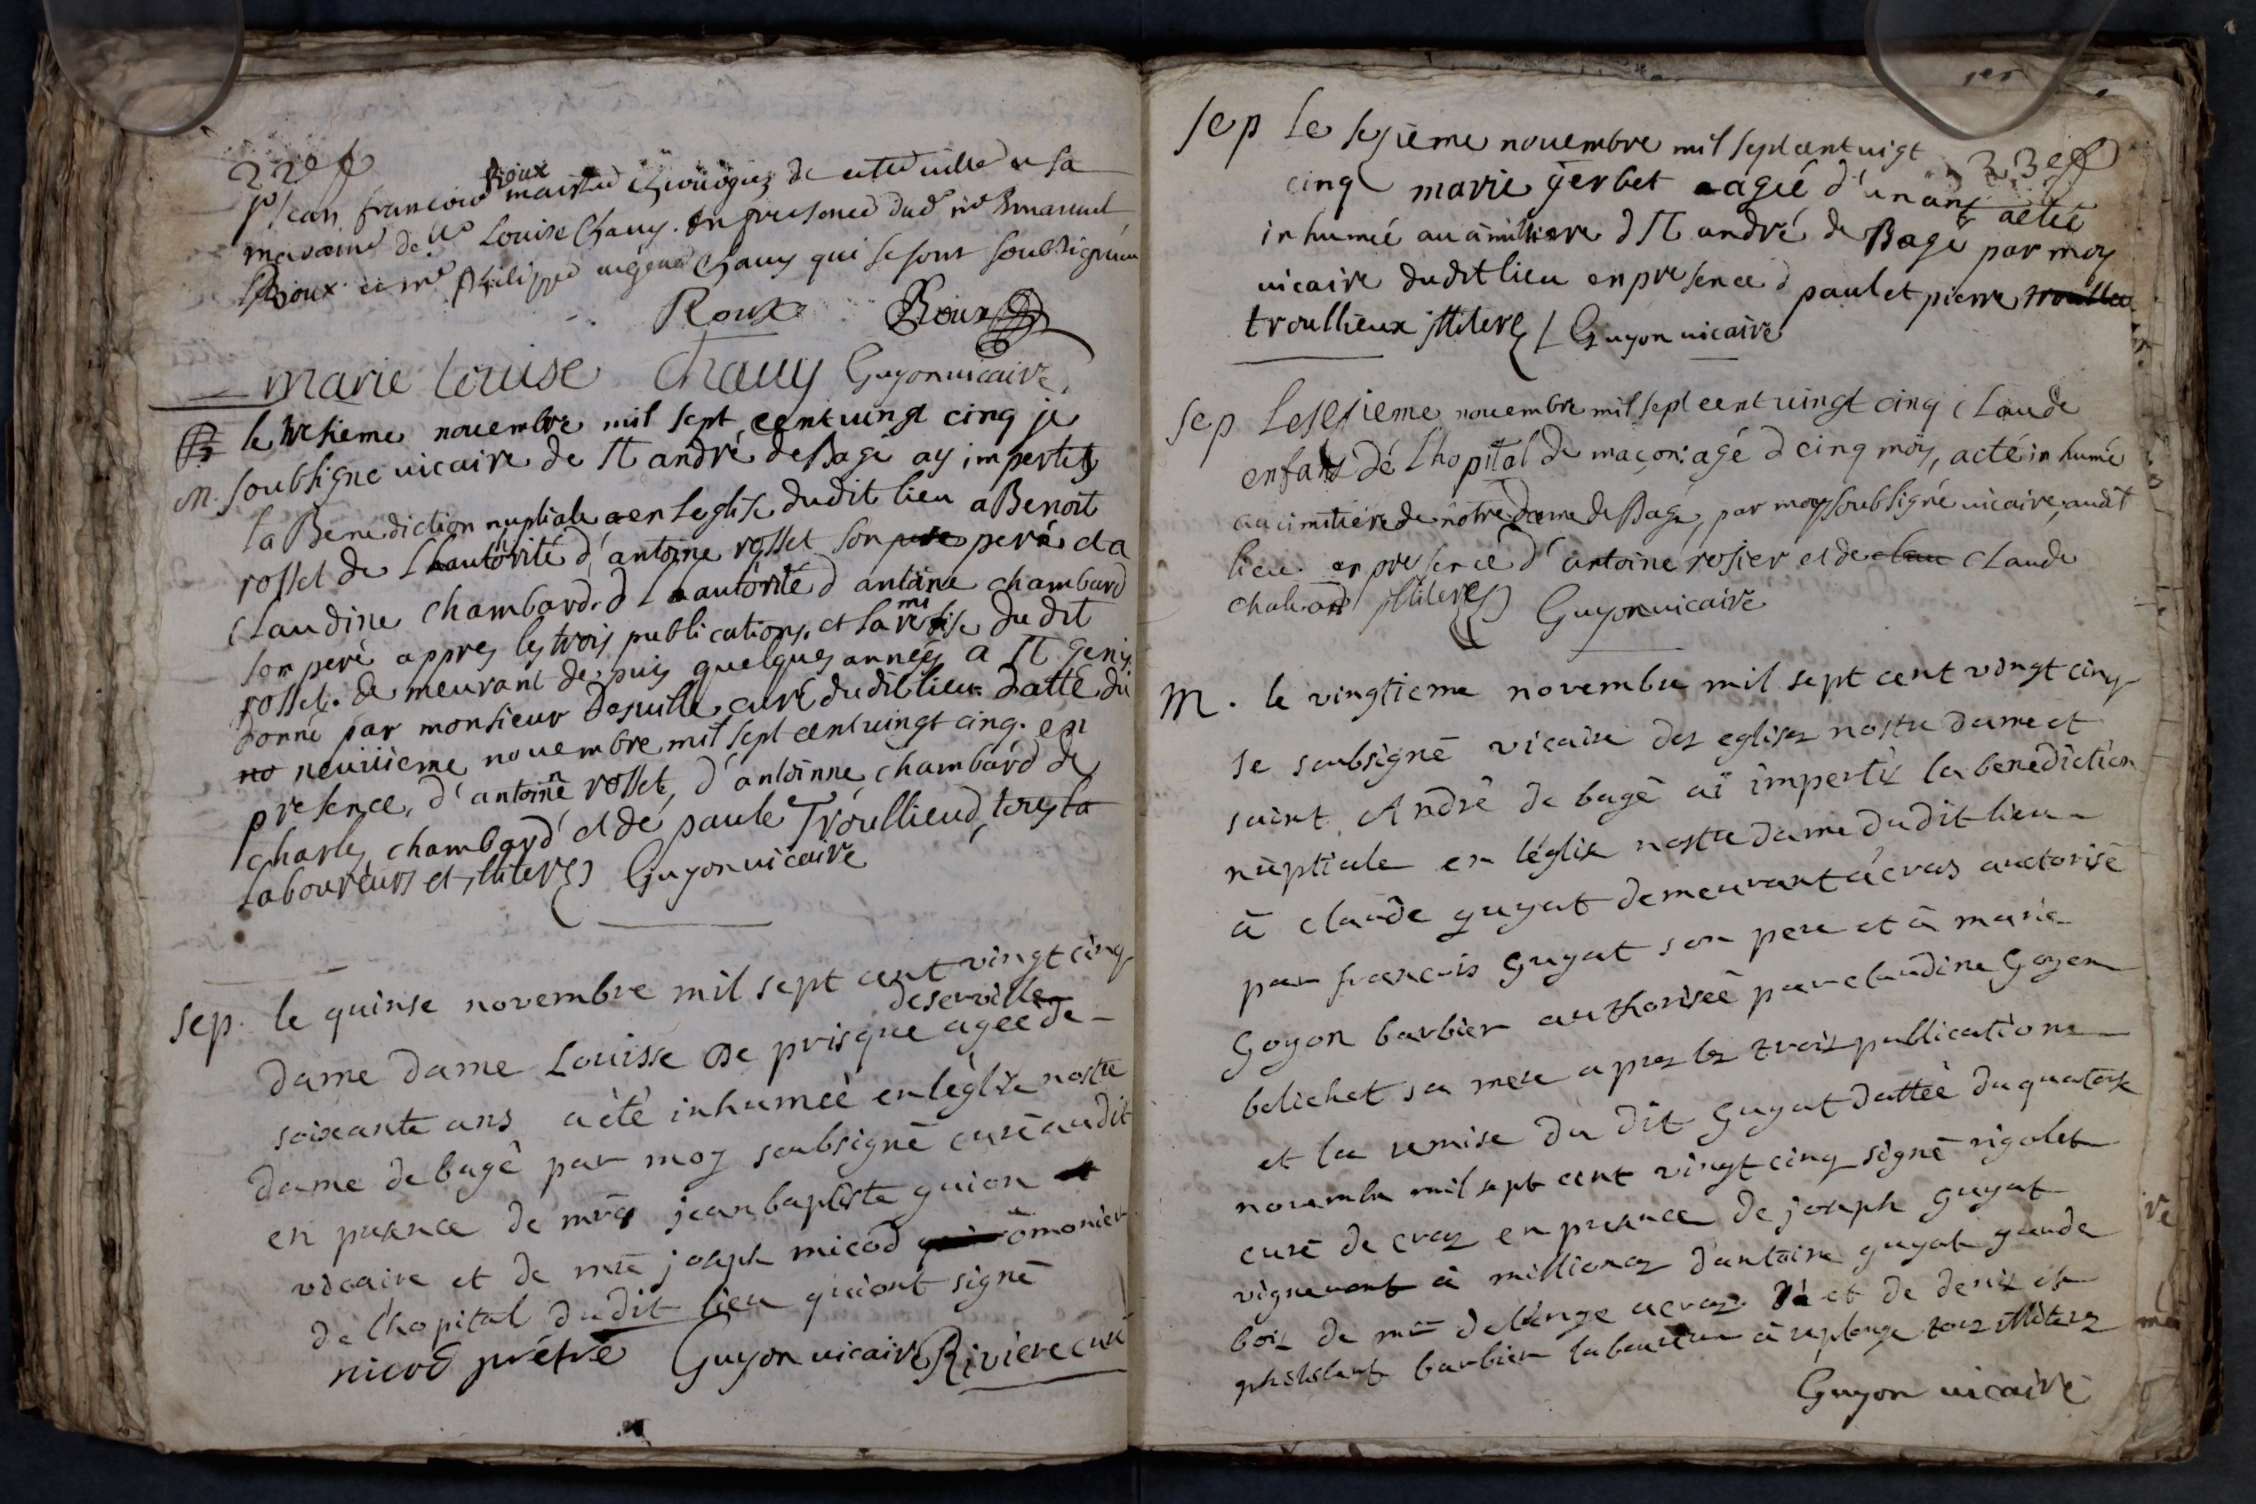 22e f
Sr jean françois Rioux maistre chirurgien de cette ville et sa
maraine dlle Louise Chauy. En presence dud sr Emanuel
Rioux et me philippe eugene Chauy qui se sont soubsignéz
Roux Rioux
marie Louise Chauy Guyon vicaire
le tresieme novembre mil sept cent vingt cinq je
M. soubsigné vicaire de St andré de Bagé ay impertis
la Benediction nuptiale en Leglise dudit lieu a Benoit
rosset de Lhautorité d'antoine rosset son pere et a
Claudine chambard d Lautorité d antoine chambard
son peré appres les trois publications et la remise du dit
rosset. de meurant depuis quelques années a St Genis
donné par monsieur curé dudit lieu datte du
no neuvieme novembre mil sept cent vingt cinq. en
presence, d'antoinne rosset, d'antoinne chambard de
Charles chambard et dé paule Troullieud, tous la
Laboureurs et illiteres Guyon vicaire
sep. le quinse novembre mil sept cent vingt cinq
deserville
dame dame Louisse De prisque ageé de
soixante ans a été inhumeé en léglise nostre
dame de bagé par moy soubsigné curé audit
en presence de mrs jean baptiste guion et
vicaire et de mre joseph micod omonier
de l'hopital dudit lieu qui ont signé
nicod prétre Guyon vicaire Riviere curé
sep Le sesieme novembre mil sept cent vigt
23e f
cinq marie gerbet agié d'un ans aeté
inhumié au cimittiere d St andré de Bagé par moy
vicaire dudit lieu en presence d paul et pierre troulle
troullieux illiteres Guyon vicaire
sep Le sesieme novembre mil sept cent vingt cinq Claude
enfant dé Lhopital de maçon agé d cinq moy, a cté inhumé
au cimitiére de nôtre Dame de Bagé, par moy soubsigné vicaire, audit
lieu. en presence d'antoine rosier et de clau Claude
illiteres Guyon vicaire
M. le vingtieme novembre mil sept cent vingt cinq
je soubsigné vicaire des eglises nostre dame et
saint André de bagé ai impertis la benediction
nuptiale en léglise nostre dame dudit lieu
à claude guyat demeurant à cras auctorisé
par francois guyat son pere et à marie
Goyon barbier authoriseé par claudine Goyon
belichet sa mere apres les trois publications
et la remise du dit guyat datteé du quatorse
novembre mil sept cent vingt cinq signé rigolet
curé de cras en presence de joseph guyat
vigneront à d'antoine guyat garde
bois de mr a cras et de denis et
barbier laboureur à replonge tous illiteres
Guyon vicaire